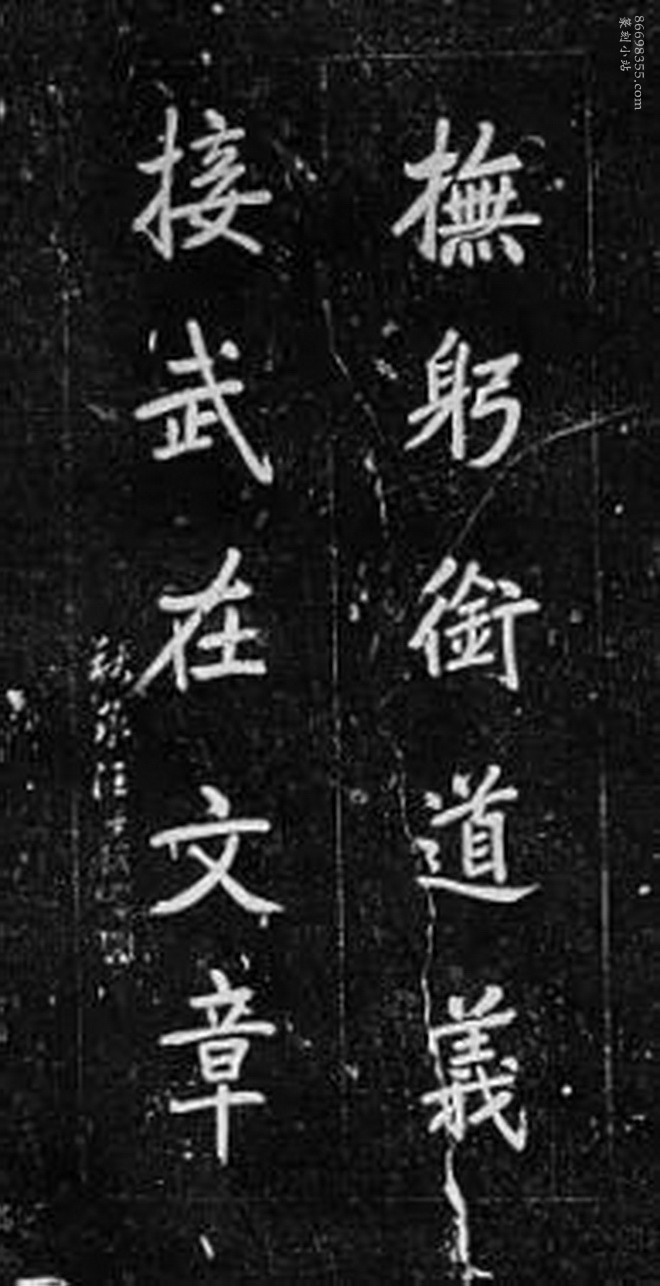 86698355.com
篆刻小站
撫躬銜道義
接武在文章